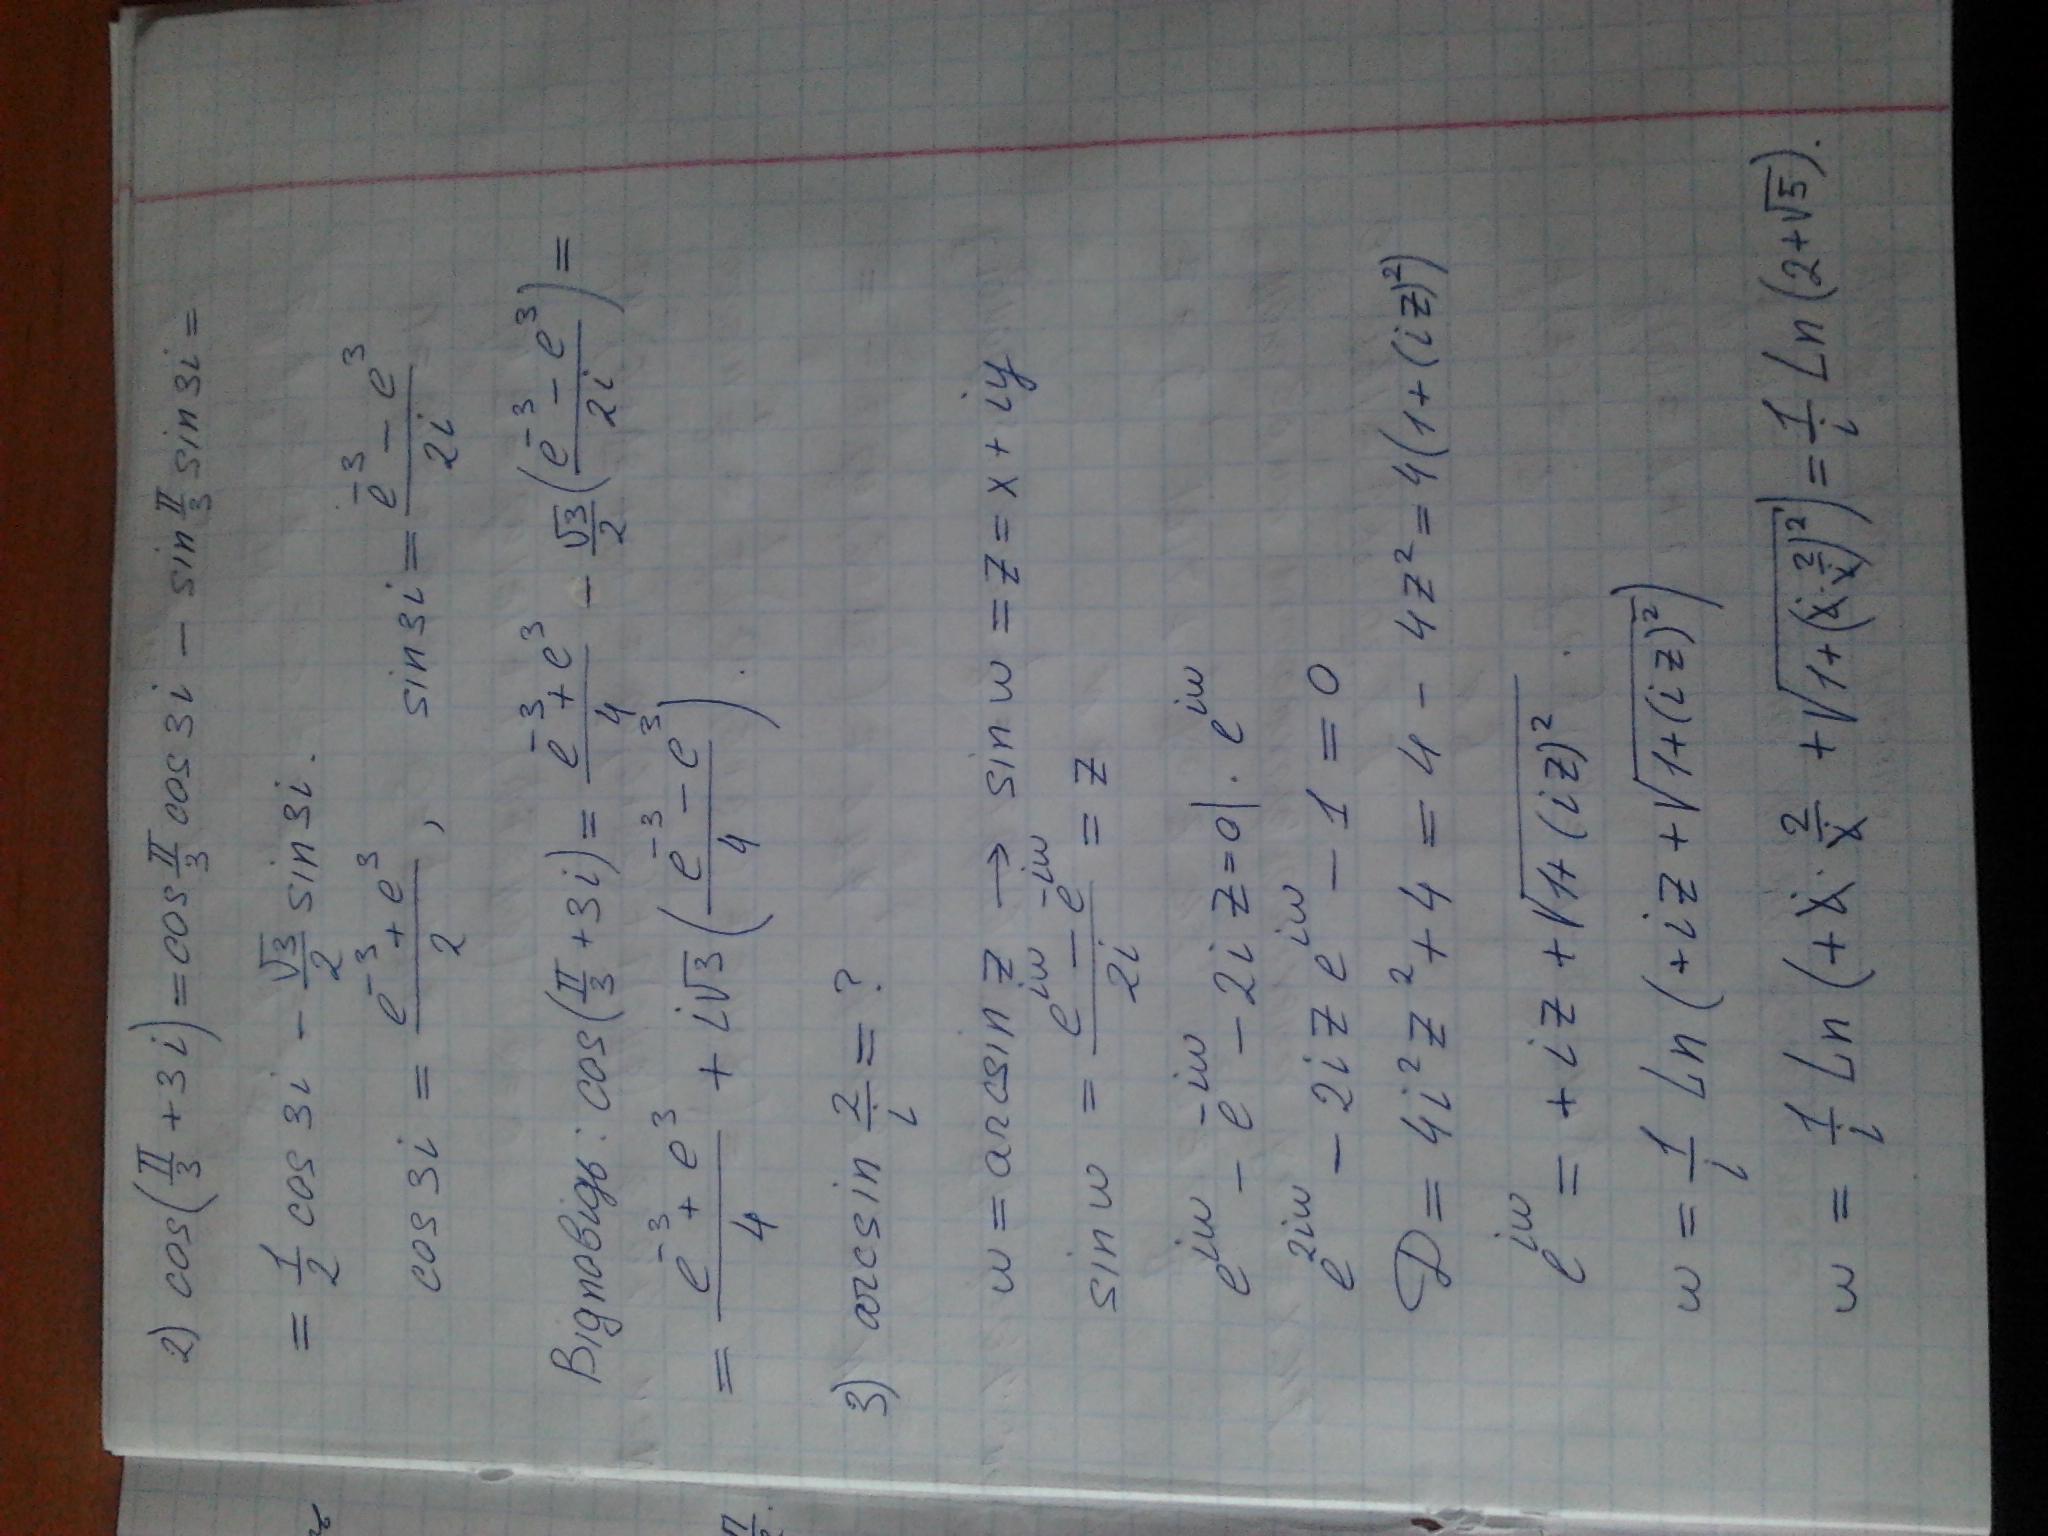 2) cos(π/3 + 3i) = cos π/3 cos 3i - sin π/3 sin 3i =
= 1/2 cos 3i - √3/2 sin 3i.
cos 3i = (e^-3 + e^3)/2 , sin 3i = (e^-3 - e^3)/2i
Відповідь: cos(π/3 + 3i) = (e^-3 + e^3)/4 - √3/2 ((e^-3 - e^3)/2i) =
= (e^-3 + e^3)/4 + i√3 ((e^-3 - e^3)/4).
3) arcsin 2/i = ?
w = arcsin z → sin w = z = x + iy
sin w = (e^iw - e^-iw)/2i = z
e^iw - e^-iw - 2i z = 0 | · e^iw
e^2iw - 2i z e^iw - 1 = 0
D = 4i² z² + 4 = 4 - 4z² = 4(1 + (iz)²)
e^iw = + iz + √(1 + (iz)²) .
w = 1/i Ln (+iz + √(1 + (iz)²))
w = 1/i Ln (+ i · 2/i + √(1 + (i · 2/i)²)) = 1/i Ln (2 + √5).